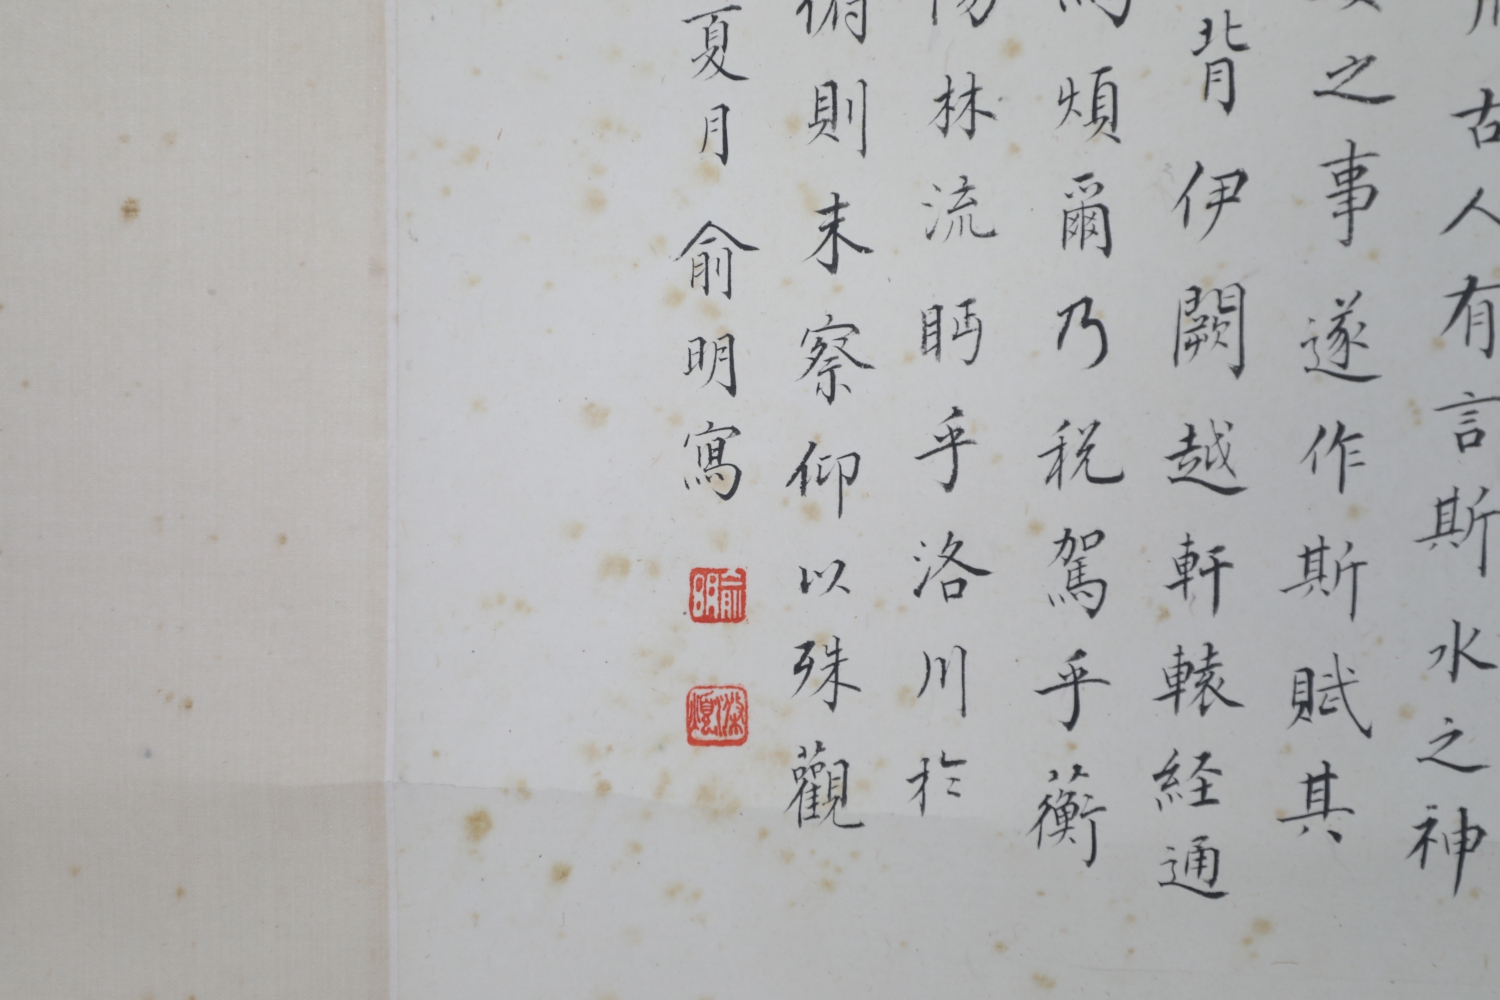 古人有言斯水之神
之事遂作斯賦其
背伊闕越轘轅経通
煩爾乃税駕乎蘅
林流眄乎洛川於
俯則末察仰以殊觀
夏月俞明寫
俞明
滌煩